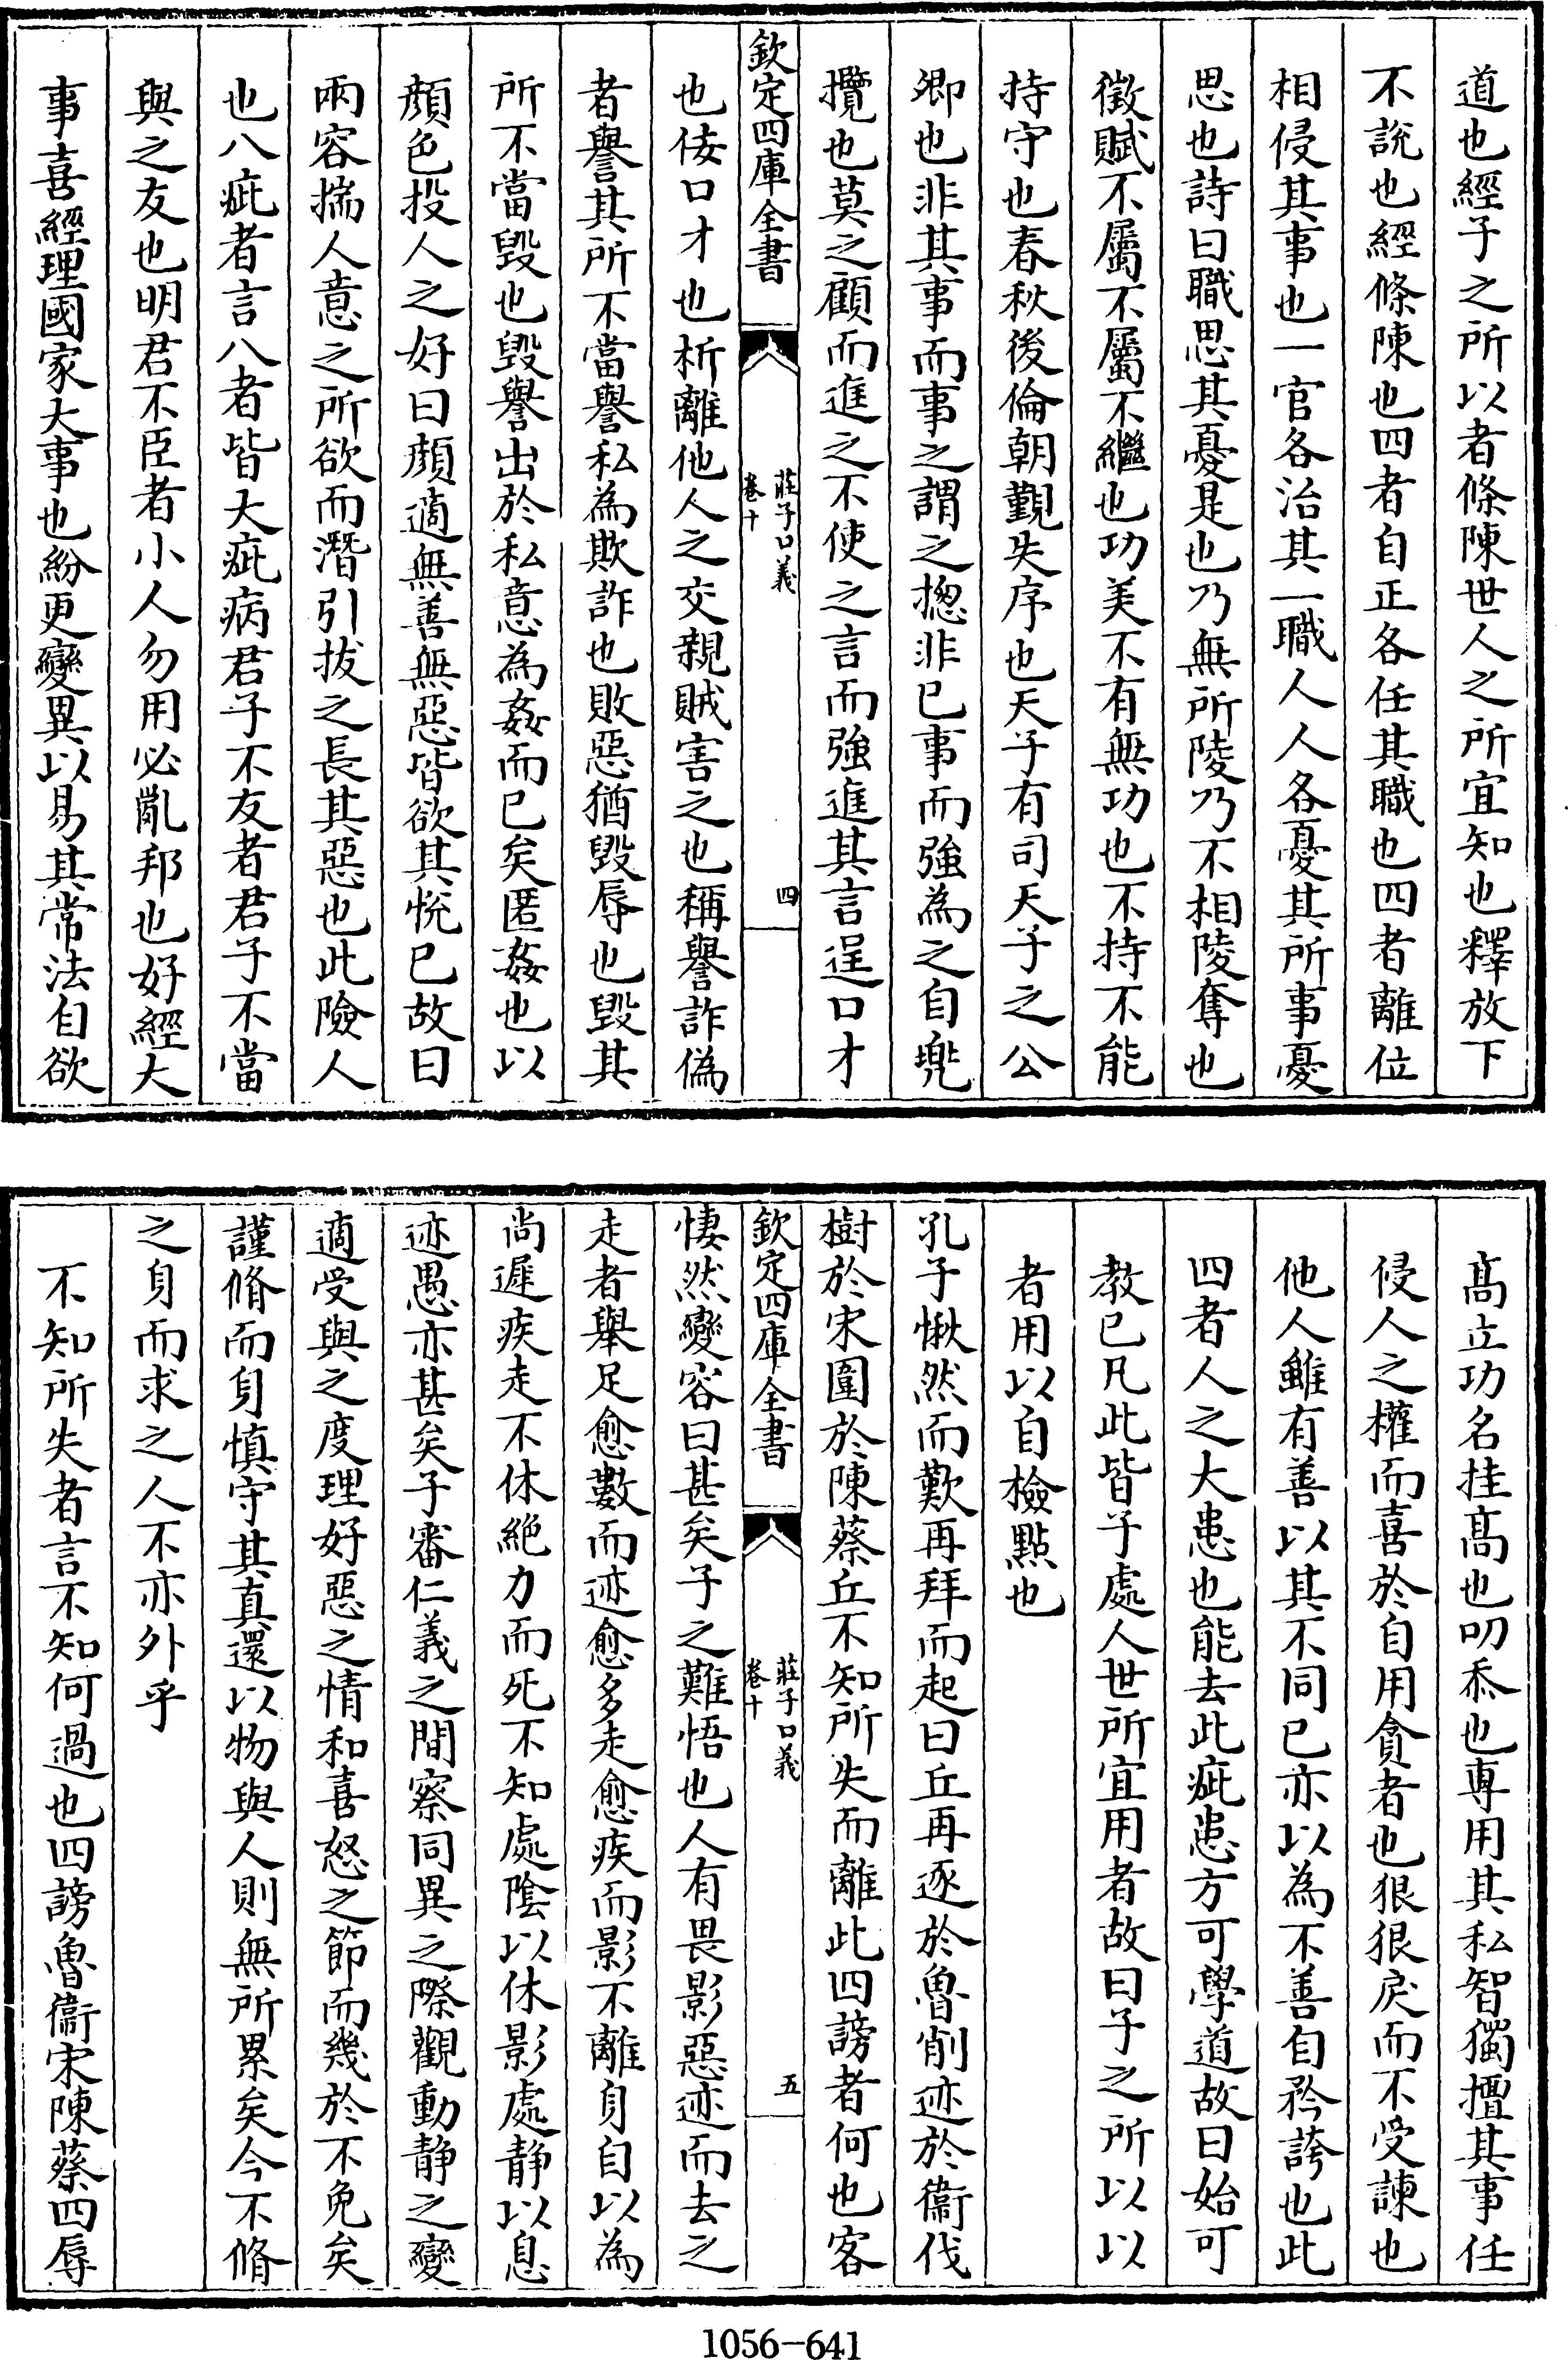 道也經子之所以者條陳世人之所宜知也釋放下
不說也經條陳也四者自正各任其職也四者離位
相侵其事也一官各治其一職人人各憂其所事憂
思也詩曰職思其憂是也乃無所陵乃不相陵奪也
徵賦不屬不屬不繼也功美不有無功也不持不能
持守也春秋後倫朝覲失序也天子有司天子之公
卿也非其事而事之謂之摠非已事而強為之自兠
攬也莫之顧而進之不使之言而強進其言逞口才
欽定四庫全書
莊子口義
卷十
四
也倿口才也析離他人之交親賊害之也稱譽詐偽
者譽其所不當譽私為欺詐也敗惡猶毀辱也毀其
所不當毀也毀譽出於私意為姦而已矣匿姦也以
顏色投人之好曰顏適無善無惡皆欲其悅已故曰
兩容揣人意之所欲而潛引拔之長其惡也此險人
也八疵者言八者皆大疵病君子不友者君子不當
與之友也明君不臣者小人勿用必亂邦也好經大
事喜經理國家大事也紛更變異以易其常法自欲
髙立功名挂髙也叨忝也專用其私智獨擅其事任
侵人之權而喜於自用貪者也狠狠戾而不受諫也
他人雖有善以其不同已亦以為不善自矜誇也此
四者人之大患也能去此疵患方可學道故曰始可
教已凡此皆子處人世所宜用者故曰子之所以以
者用以自檢點也
孔子愀然而歎再拜而起曰丘再逐於魯削迹於衞伐
樹於宋圍於陳蔡丘不知所失而離此四謗者何也客
欽定四庫全書
莊子口義
卷十
五
悽然變容曰甚矣子之難悟也人有畏影惡迹而去之
走者舉足愈數而迹愈多走愈疾而影不離身自以為
尚遲疾走不休絶力而死不知處陰以休影處靜以息
迹愚亦甚矣子審仁義之間察同異之際觀動靜之變
適受與之度理好惡之情和喜怒之節而幾於不免矣
謹脩而身慎守其真還以物與人則無所累矣今不脩
之身而求之人不亦外乎
不知所失者言不知何過也四謗魯衞宋陳蔡四辱
1056-641